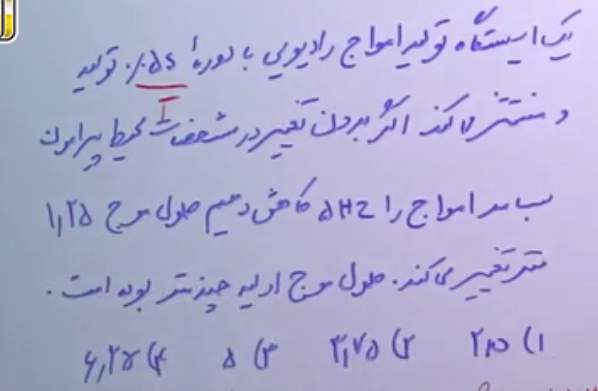 یک ایستگاه تولید امواج رادیویی با دورهٔ ۰٫۰۵s تولید
و منتشر می کند اگر بدون تغییر در مشخصات محیط پیرامون
بسامد امواج را ۵Hz کاهش دهیم طول موج ۱٫۲۵
متر تغییر می کند. طول موج اولیه چند متر بوده است.
۱) ۲٫۵ ۲) ۳٫۷۵ ۳) ۵ ۴) ۶٫۲۵